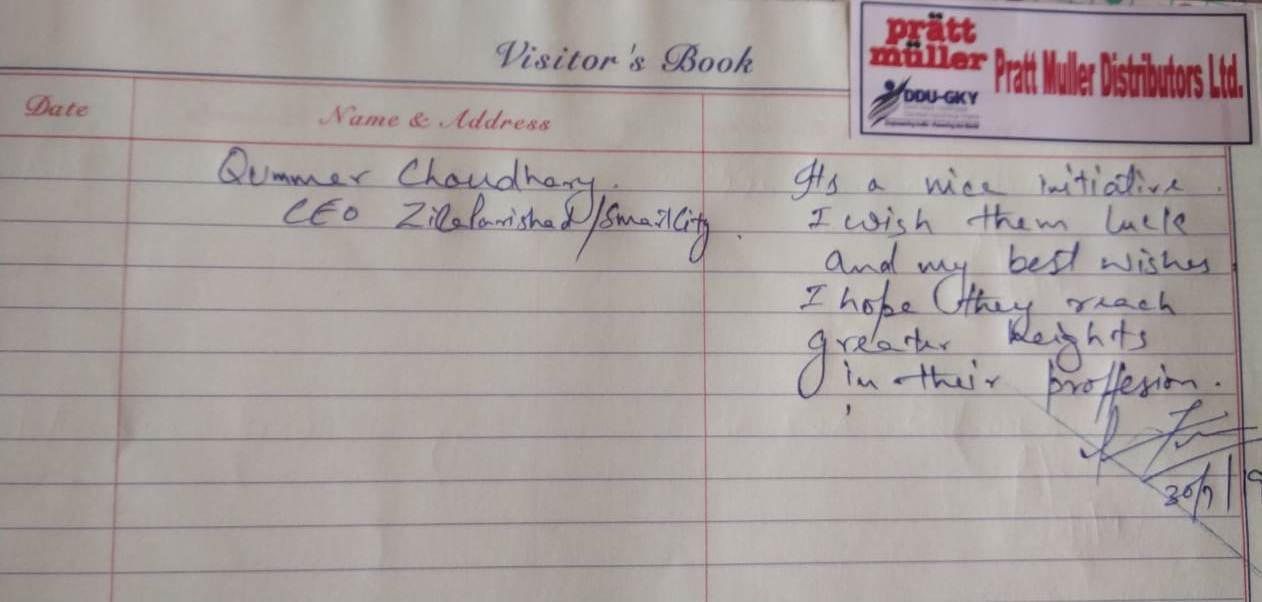 Visitor's Book
prätt
müller
Pratt Muller Distributors Ltd.
DDU-GKY
Date
Name & Address
Qummer Choudhary.
CEO Zilaparishad/SmartCity.
Its a nice initiative.
I wish them luck
and my best wishes
I hope they reach
greater heights
in their proffesion.
30/7/19